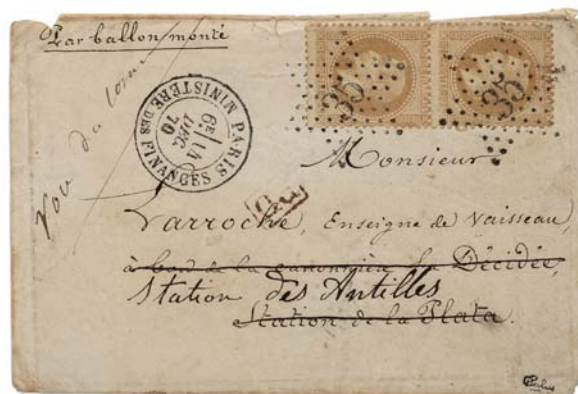 Par ballon monté
PARIS MINISTERE DES FINANCES
6E 14
DEC
70
35
35
Voie du
PD
Monsieur
Larroche, Enseigne de Vaisseau,
à bord de la canonnière la Décidée,
Station des Antilles
Station de la Plata.